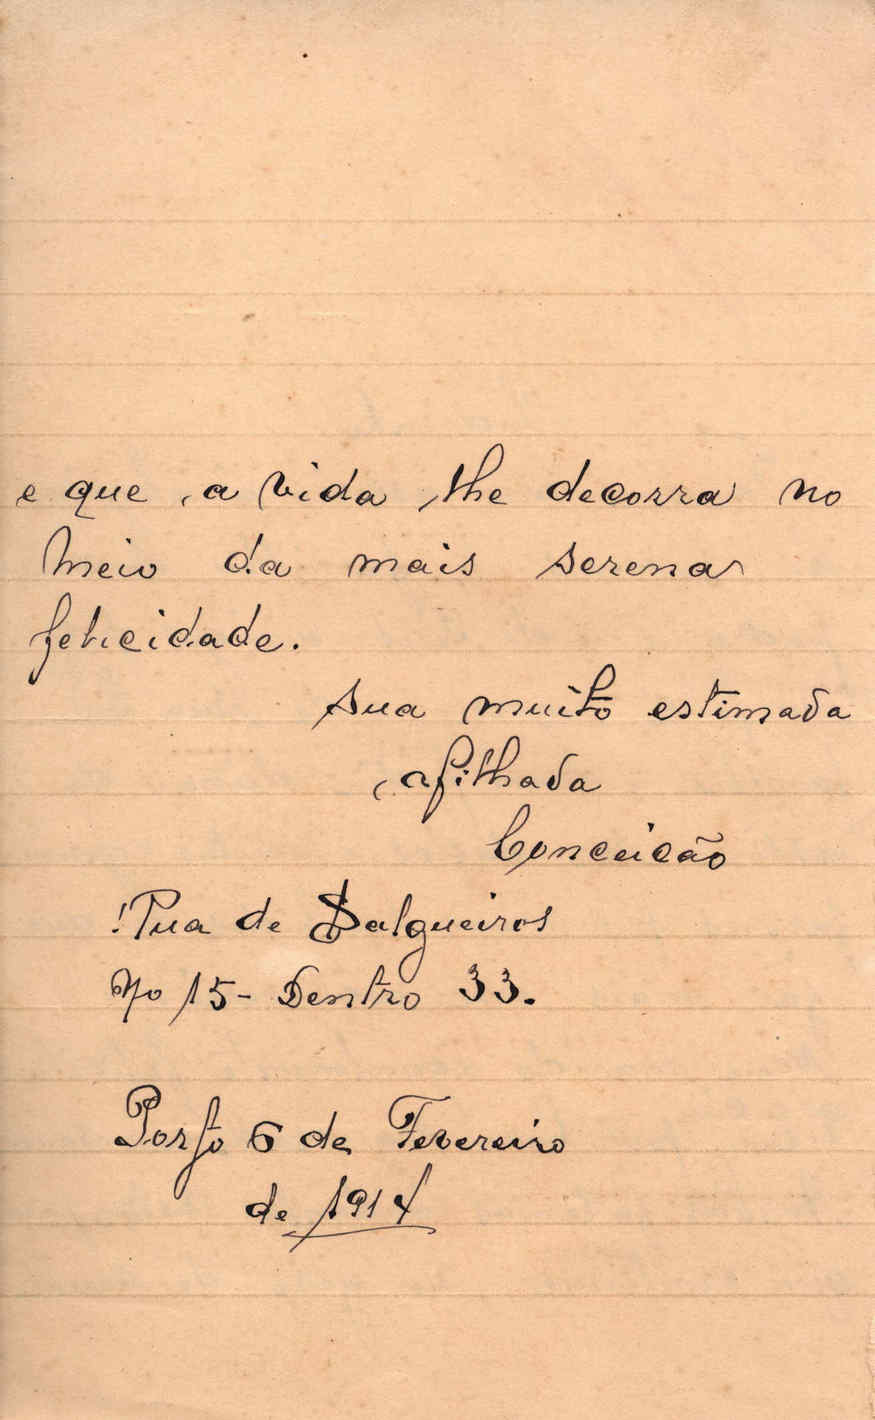 e que a vida lhe decorra no
meio da mais serena
felicidade.
Sua muito estimada
afilhada
Conceição
Rua de Salgueiros
No 15 - Dentro 33.
Porto 6 de Fevereiro
de 1914